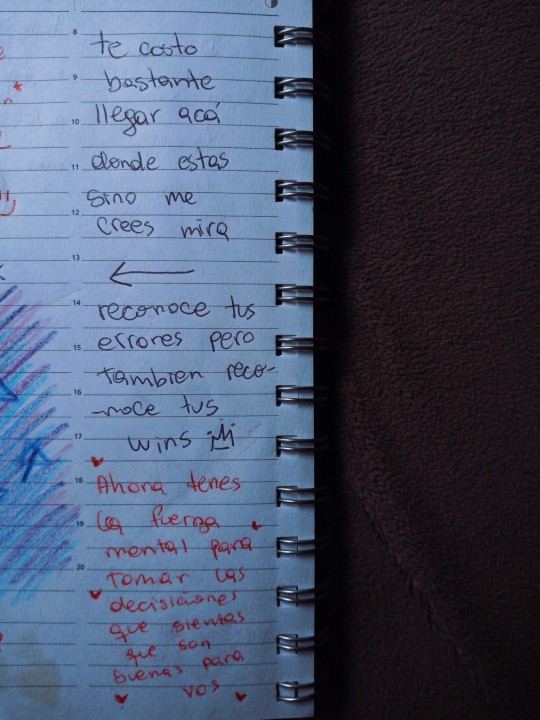 8 te costo
9 bastante
10 llegar acá
11 donde estas
sino me
12
crees mira
13
14 reconoce tus
15 errores pero
tambien reco-
16
-noce tus
17 wins
18 Ahora tenes
19 la fuerza
mental para
20 tomar las
decisiciones
que sientas
que son
buenas para
vos